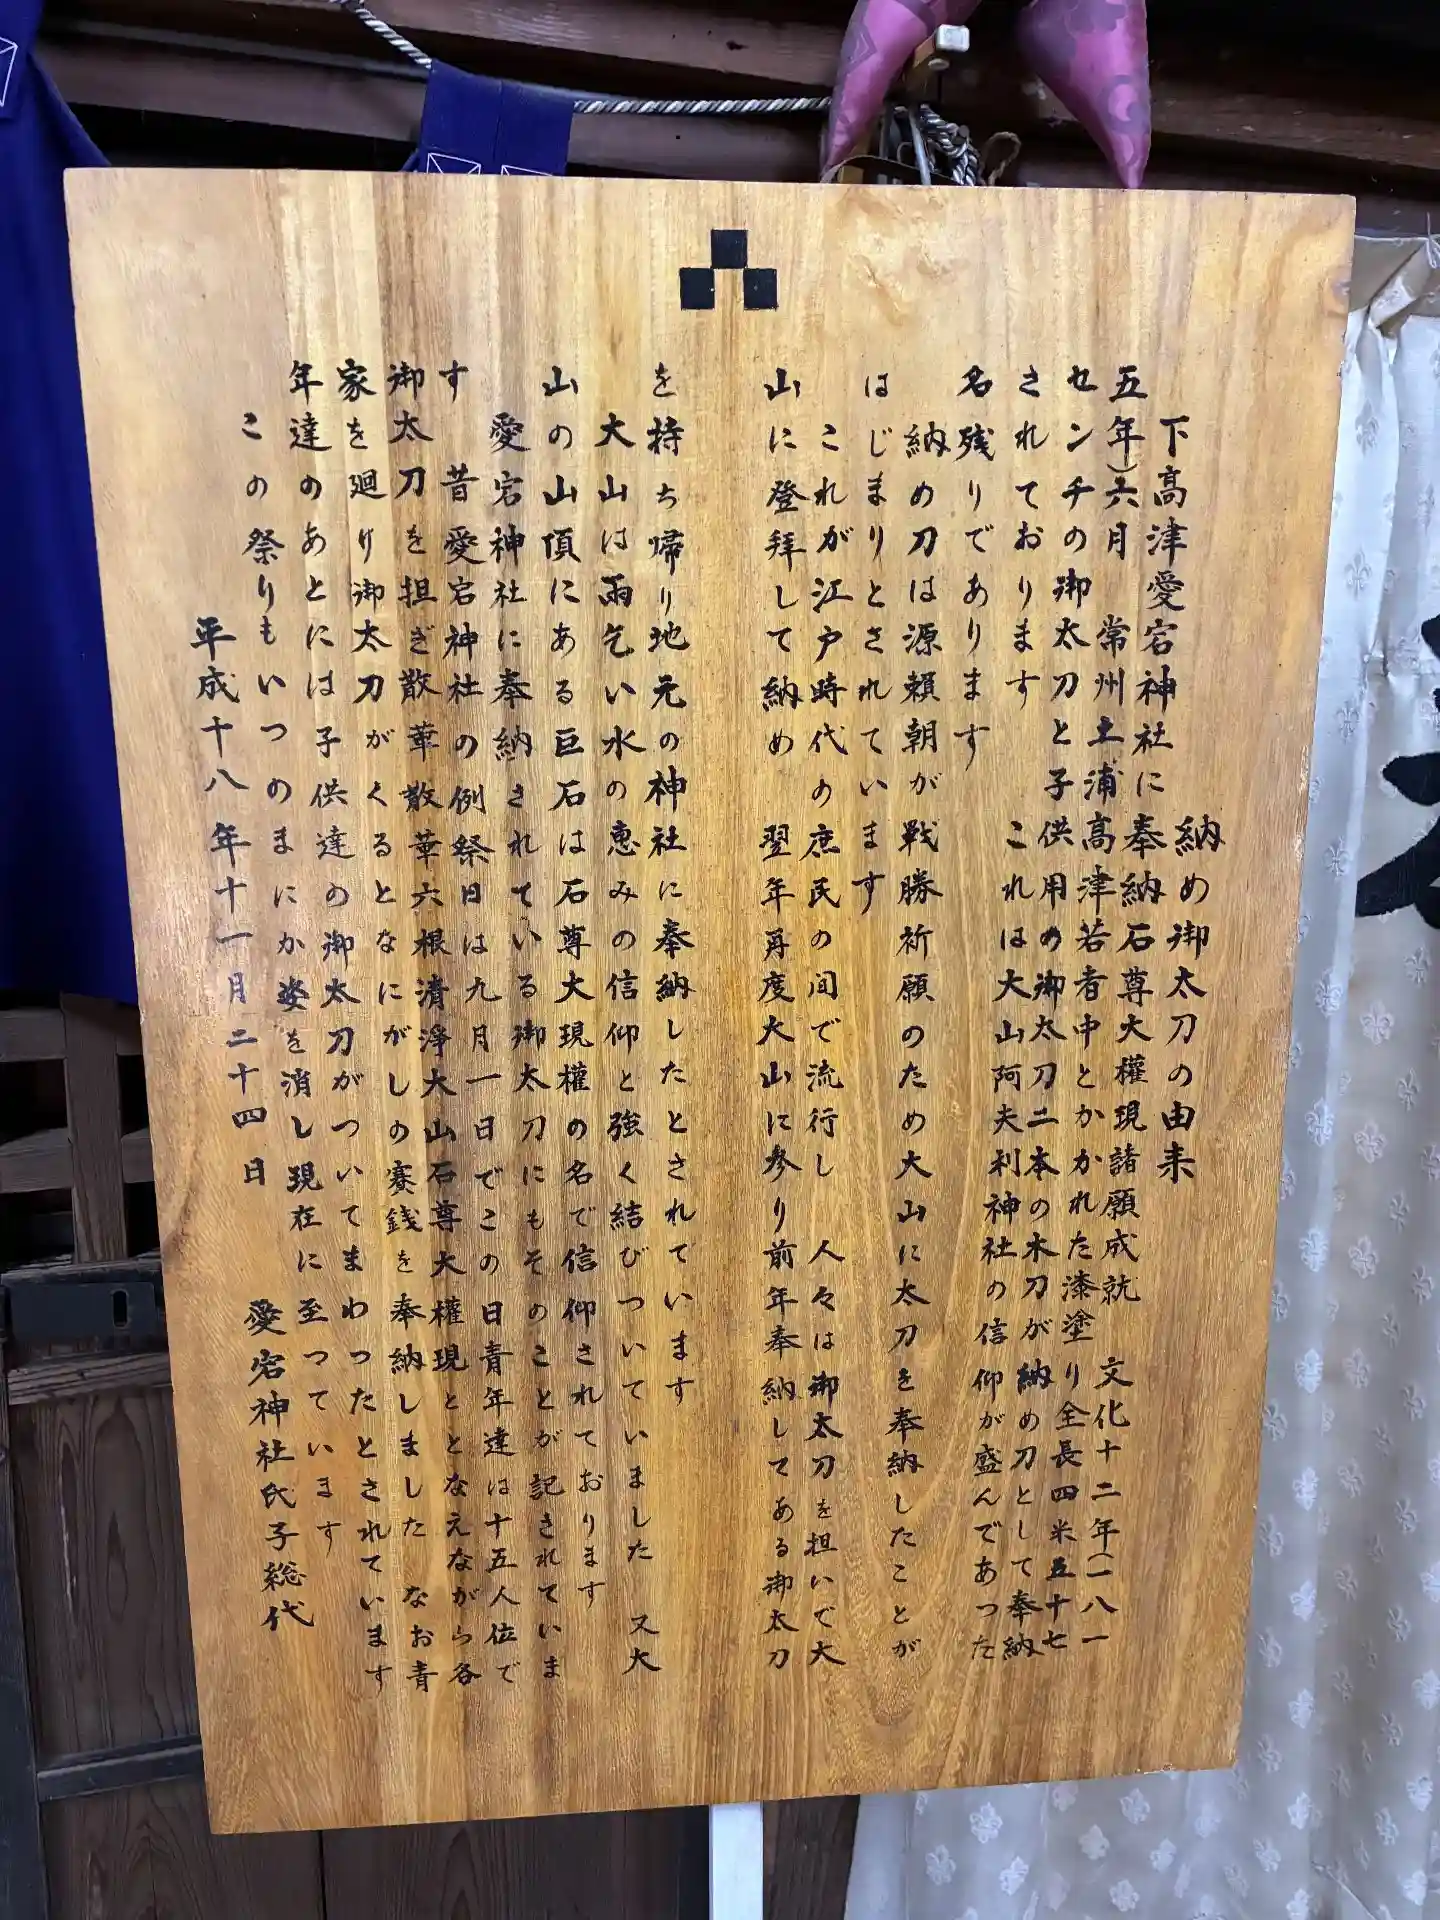 納め御太刀の由来
下高津愛宕神社に奉納石尊大權現諸願成就 文化十二年(一八一
五年)六月 常州土浦高津若者中とかかれた漆塗り全長四米五十七
センチの御太刀と子供用の御太刀二本の木刀が納め刀として奉納
されております これは大山阿夫利神社の信仰が盛んであった
名残りであります
納め刀は源頼朝が戦勝祈願のため大山に太刀を奉納したことが
はじまりとされています
これが江戸時代の庶民の间で流行し 人々は御太刀を担いで大
山に登拜して納め 翌年再度大山に参り前年奉納してある御太刀
を持ち帰り地元の神社に奉納したとされています
大山は雨乞い水の恵みの信仰と強く結びついていました 又大
山の山頂にある巨石は石尊大現權の名で信仰されております
愛宕神社に奉納されている御太刀にもそのことが記されていま
す 昔愛宕神社の例祭日は九月一日でこの日青年達は十五人位で
御太刀を担ぎ散華散華六根清淨大山石尊大權現ととなえながら各
家を廻り御太刀がくるとなにがしの賽銭を奉納しました なお青
年達のあとには子供達の御太刀がついてまわったとされています
この祭りもいつのまにか姿を消し現在に至っています
平成十八年十一月二十四日 愛宕神社氏子総代